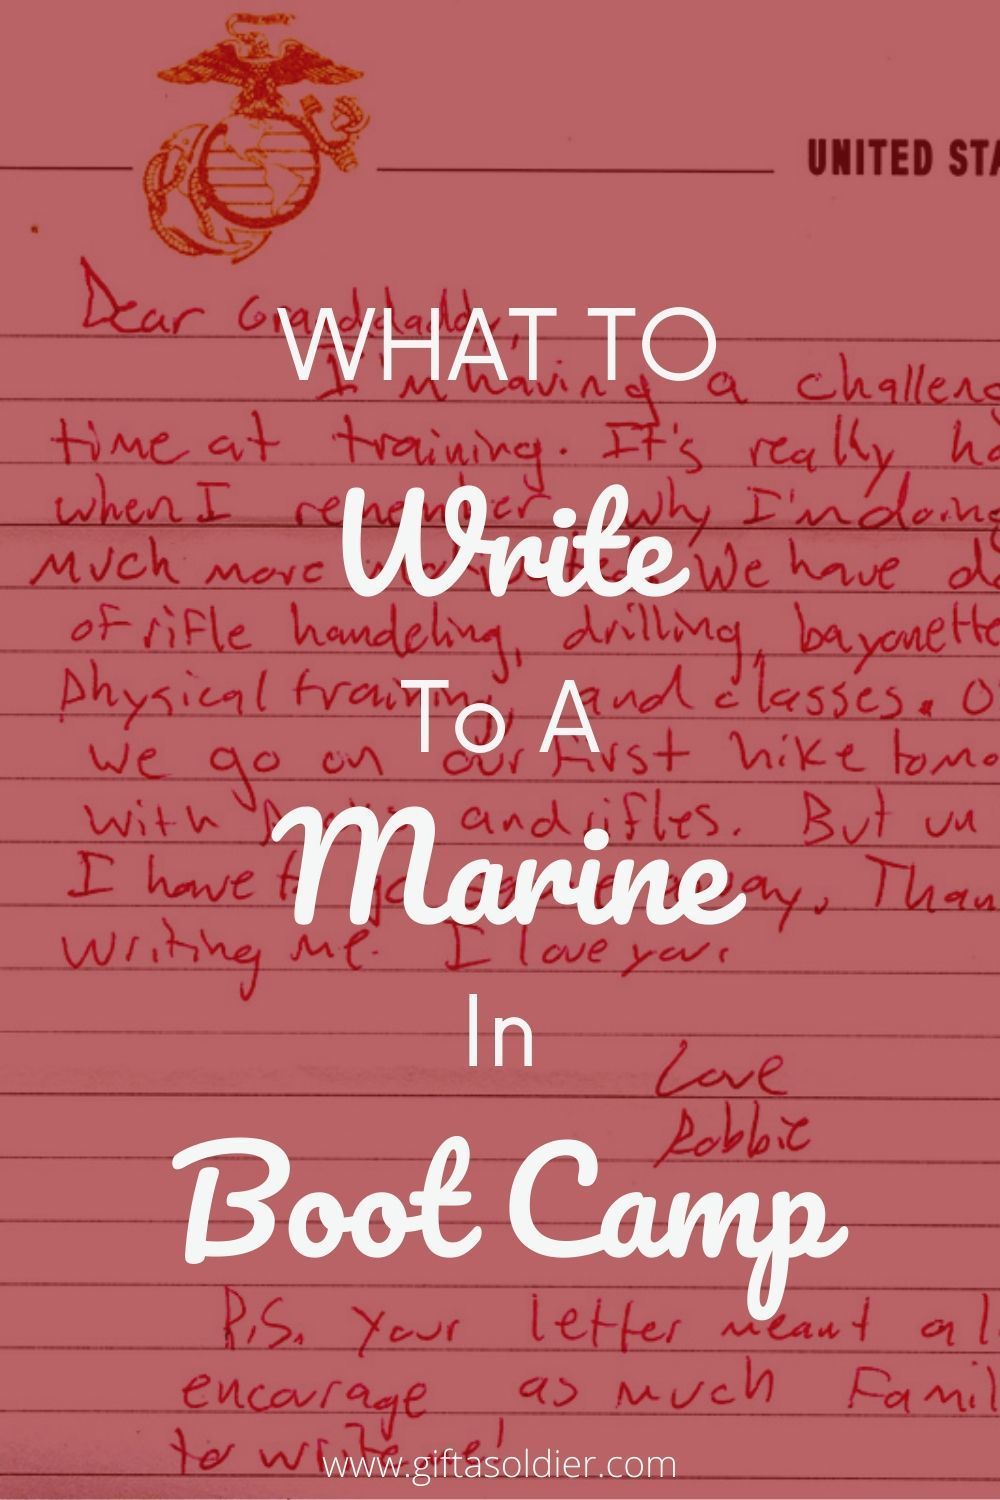 UNITED STA
Dear Granddaddy,
WHAT TO
I'm having a challeng
time at training. It's really ha
when I remember why I'm doing
Write
much more We have da
of rifle handeling, drilling, bayonette
To A
physical training, and classes. O
we go on our first hike tomo
with and rifles. But un
Marine
I have to go Than
writing me. I love you.
In
Love
Robbie
Boot Camp
P.S. Your letter meant a l
encourage as much Famil
to write me!
www.giftasoldier.com